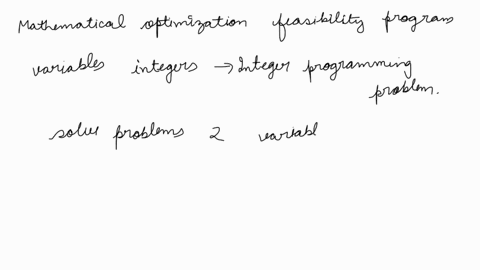 Mathematical optimization feasibility program
variables integers → Integer programming
problem.
solve problems 2 variabl